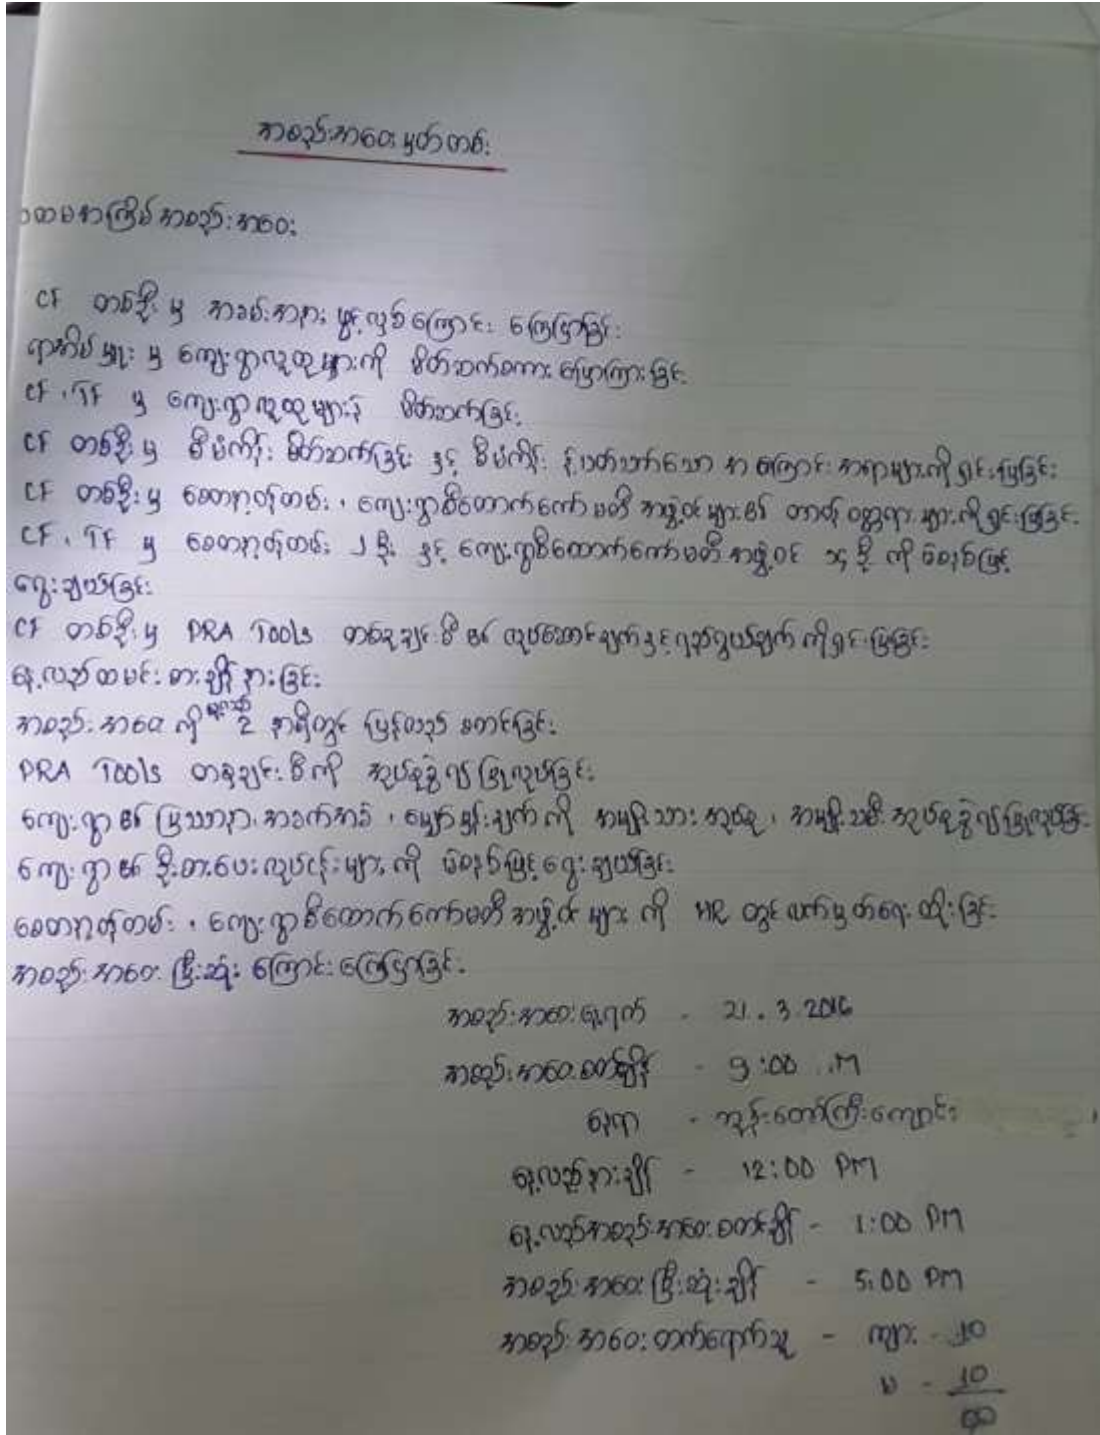 အစည်းအဝေး မှတ်တမ်း
ပထမအကြိမ် အစည်းအဝေး
CF တစ်ဦး မှ အခမ်းအနား ဖွင့်လှစ်ကြောင်း ကြေငြာခြင်း
ရာအိမ်မှူး မှ ကျေးရွာလူထုများကို မိတ်ဆက်စကား ပြောကြားခြင်း
CF ၊ TF မှ ကျေးရွာလူထုများနှင့် မိတ်ဆက်ခြင်း
CF တစ်ဦး မှ စီမံကိန်း မိတ်ဆက်ခြင်း နှင့် စီမံကိန်း နှင့်ပတ်သက်သော အကြောင်းအရာများကို ရှင်းပြခြင်း
CF တစ်ဦး မှ စေတနာ့ဝန်ထမ်း ၊ ကျေးရွာစီထောက်ကော်မတီ အဖွဲ့ဝင်များ၏ တာဝန် ဝတ္တရား များကို ရှင်းပြခြင်း
CF ၊ TF မှ စေတနာ့ဝန်ထမ်း ၂ ဦး နှင့် ကျေးရွာစီထောက်ကော်မတီ အဖွဲ့ဝင် ဦး ကို မဲစနစ်ဖြင့်
ရွေးချယ်ခြင်း
CF တစ်ဦး မှ PRA Tools တစ်ခုချင်းစီ ၏ လုပ်ဆောင်ချက်နှင့် ရည်ရွယ်ချက် ကို ရှင်းပြခြင်း
နေ့လည်ထမင်း စားချိန် နားခြင်း
အစည်းအဝေး ကို နာရီတွင် ပြန်လည် စတင်ခြင်း
PRA Tools တစ်ခုချင်းစီကို အုပ်စုခွဲ၍ ပြုလုပ်ခြင်း
ကျေးရွာ၏ ပြဿနာ၊ အခက်အခဲ ၊ မျှော်မှန်းချက် ကို အမျိုးသား အုပ်စု ၊ အမျိုးသမီး အုပ်စုခွဲ၍ ပြုလုပ်ခြင်း
ကျေးရွာ၏ ဦးစားပေး လုပ်ငန်းများ ကို မဲစနစ်ဖြင့် ရွေးချယ်ခြင်း
စေတနာ့ဝန်ထမ်း ၊ ကျေးရွာစီထောက်ကော်မတီ အဖွဲ့ဝင် များ ကို MR တွင် လက်မှတ်ရေးထိုးခြင်း
အစည်းအဝေး ပြီးဆုံး ကြောင်း ကြေငြာခြင်း
အစည်းအဝေး နေ့ရက် - 21.3.2016
အစည်းအဝေး စတင်ချိန် - 9:00
နေရာ - ဘုန်းတော်ကြီးကျောင်း
နေ့လည်နားချိန် - 12:00 PM
နေ့လည်အစည်းအဝေး စတင်ချိန် - 1:00 PM
အစည်းအဝေး ပြီးဆုံးချိန် - 5:00 PM
အစည်းအဝေး တက်ရောက်သူ - ကျား -
မ -